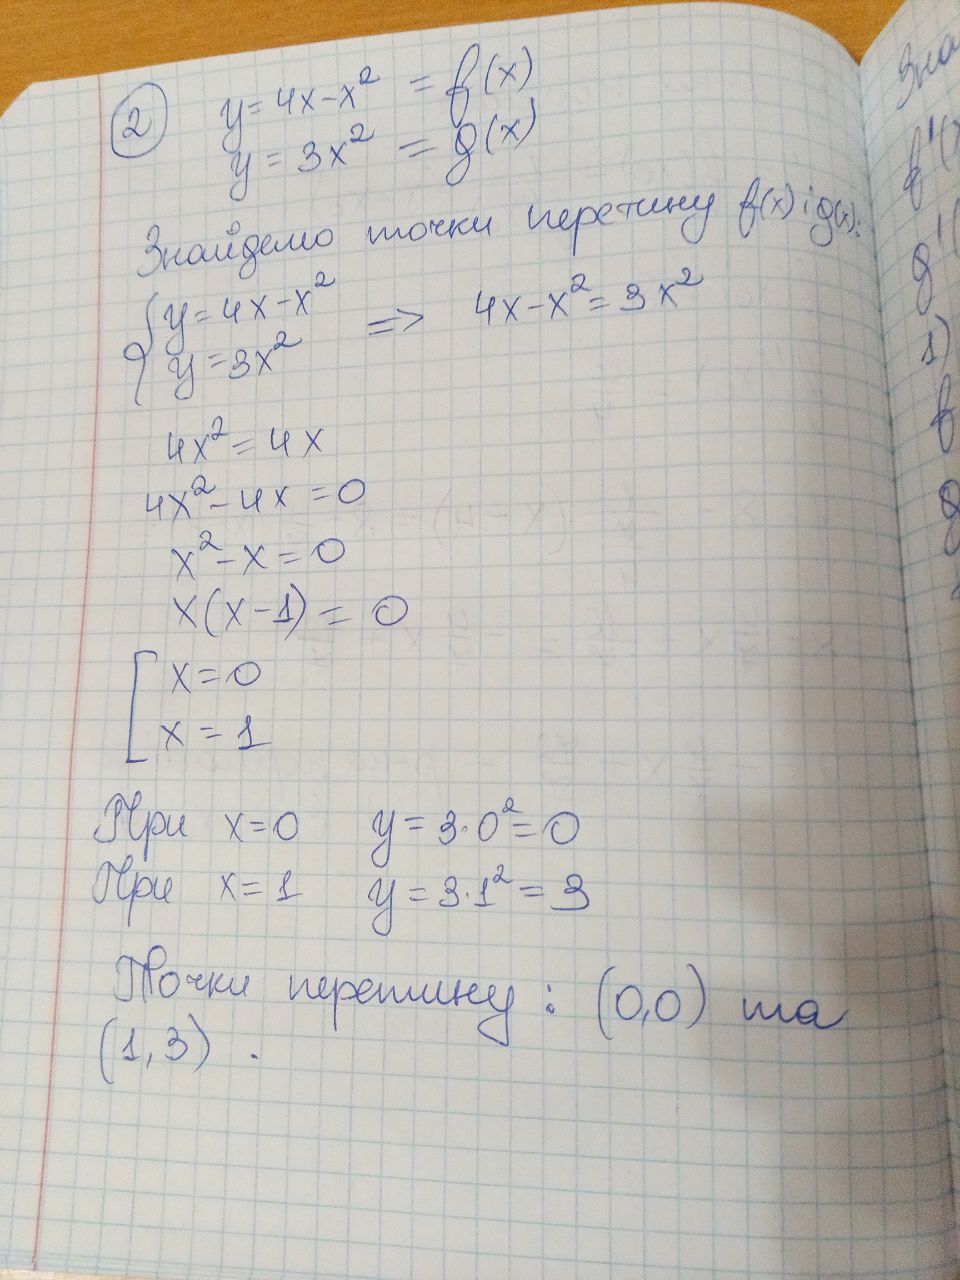 2
y = 4x - x² = f(x)
y = 3x² = g(x)
Знайдемо точки перетину f(x) і g(x):
{ y = 4x - x²
y = 3x²
=> 4x - x² = 3x²
4x² = 4x
4x² - 4x = 0
x² - x = 0
x(x - 1) = 0
[ x = 0
x = 1
При x = 0 y = 3·0² = 0
При x = 1 y = 3·1² = 3
Точки перетину : (0,0) та
(1,3) .
f'(
g'(
1)
f
g